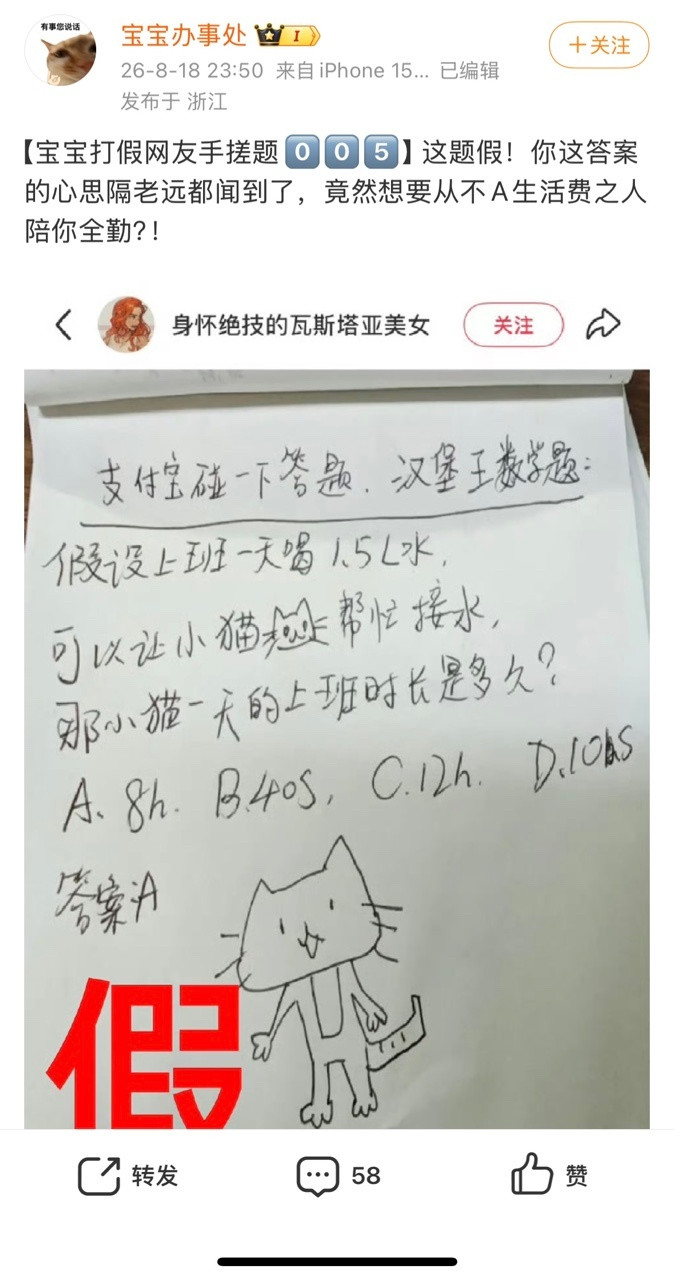 有事您说话
宝宝办事处
I
+关注
26-8-18 23:50 来自 iPhone 15... 已编辑
发布于 浙江
【宝宝打假网友手搓题0️⃣0️⃣5️⃣】这题假！你这答案
的心思隔老远都闻到了，竟然想要从不A生活费之人
陪你全勤?!
身怀绝技的瓦斯塔亚美女
关注
支付宝碰一下答题．汉堡王数学题：
假设上班一天喝1.5L水，
可以让小猫帮忙接水，
那小猫一天的上班时长是多久？
A. 8h. B.40s, C.12h. D.10s
答案:A
假
转发
58
赞